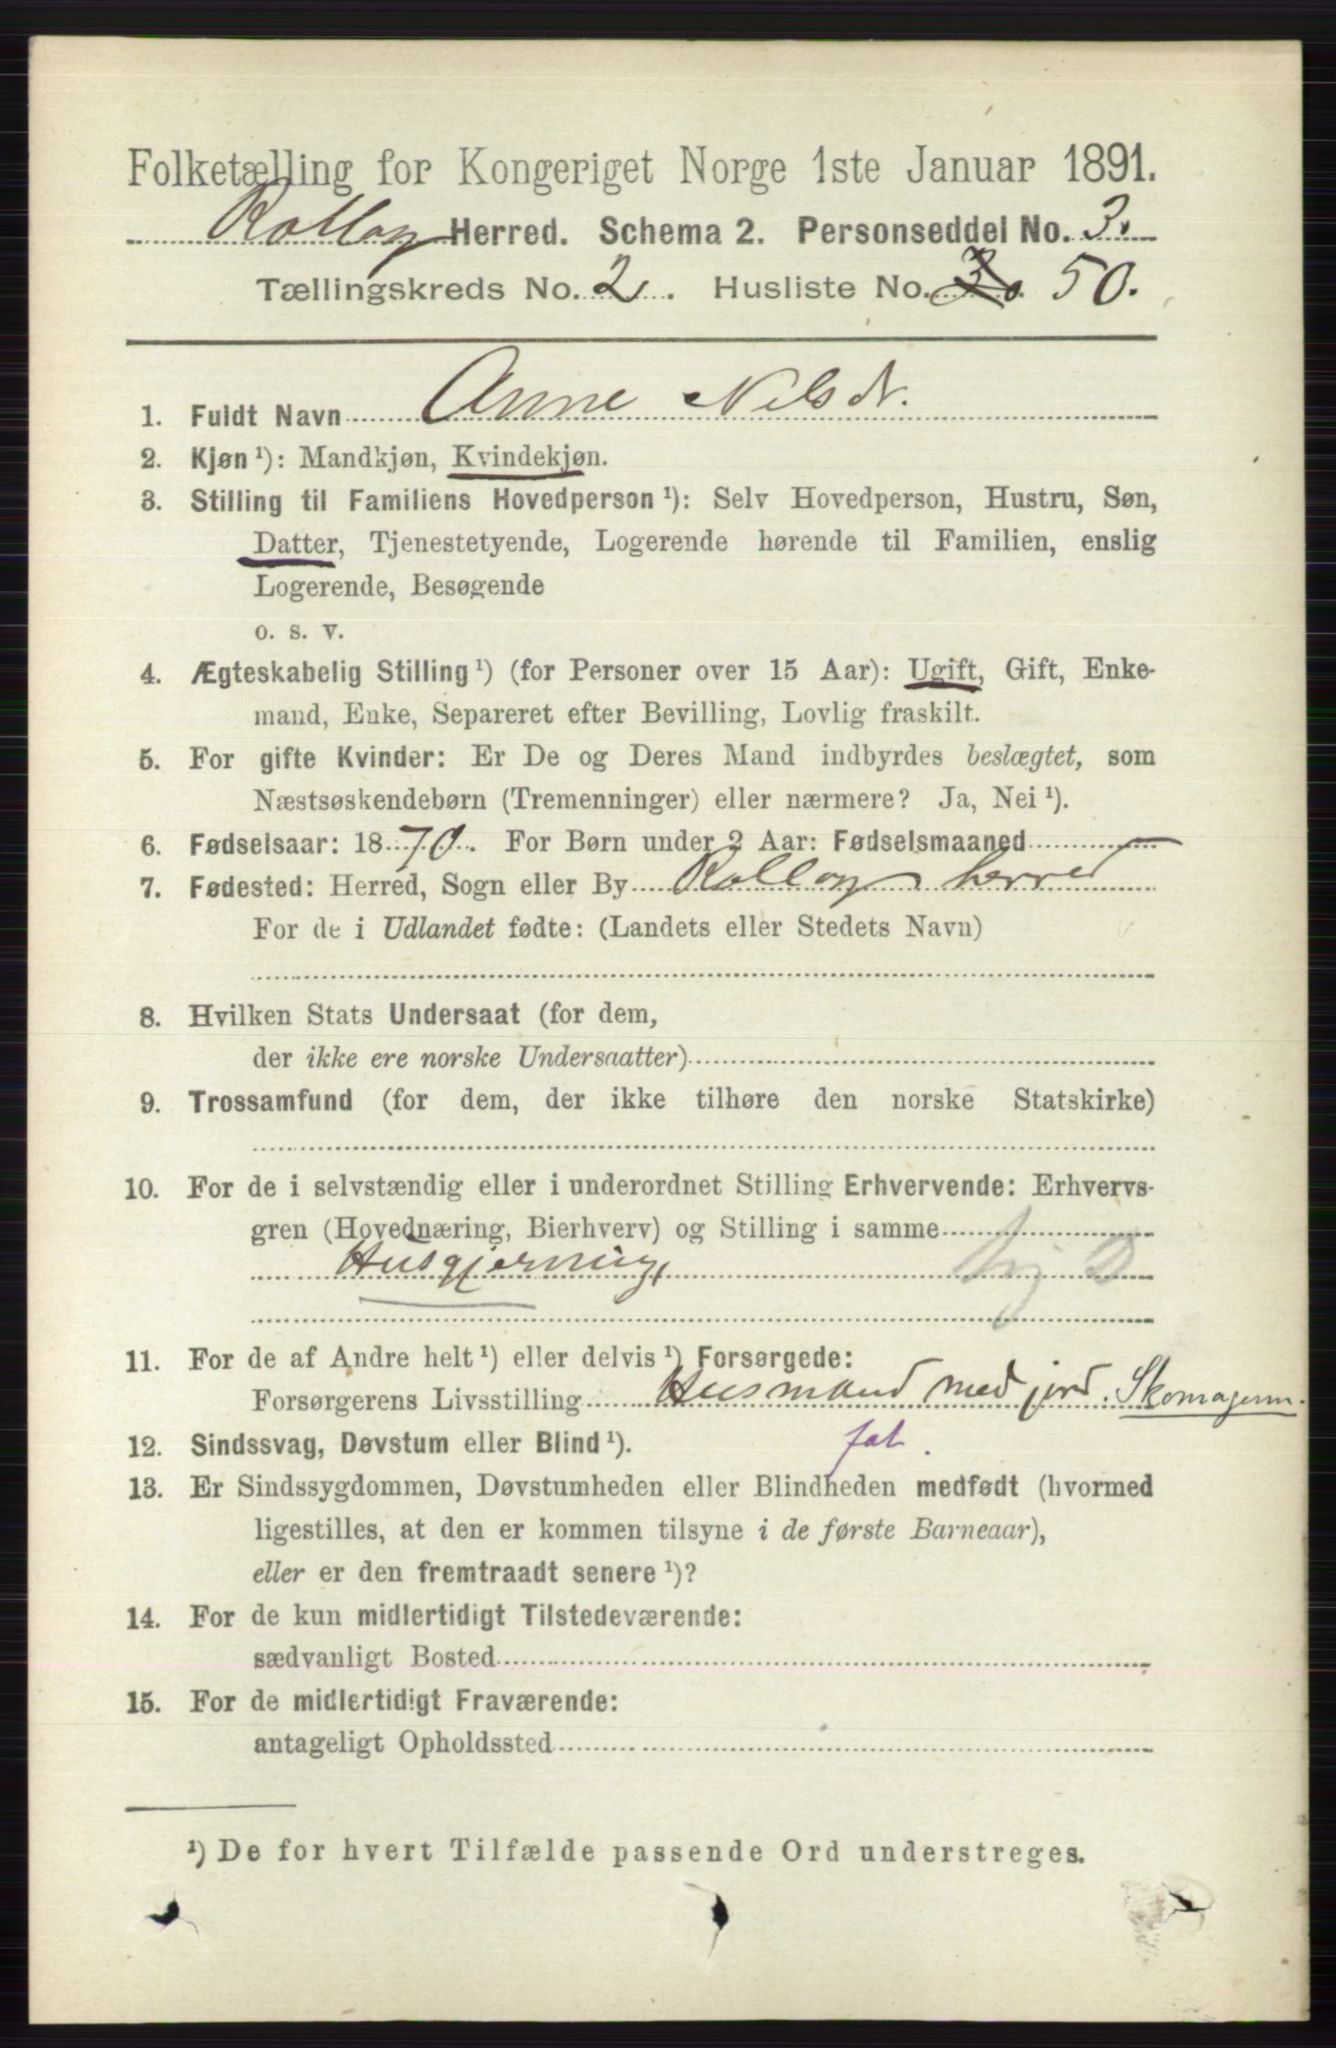 Folketælling for Kongeriget Norge 1ste Januar 1891.
Rollag Herred. Schema 2. Personseddel No. 3.
Tællingskreds No. 2. Husliste No. 3. 50.
1. Fuldt Navn Anne Nilsdt.
2. Kjøn ¹): Mandkjøn, Kvindekjøn.
3. Stilling til Familiens Hovedperson ¹): Selv Hovedperson, Hustru, Søn,
Datter, Tjenestetyende, Logerende hørende til Familien, enslig
Logerende, Besøgende
o. s. v.
4. Ægteskabelig Stilling ¹) (for Personer over 15 Aar): Ugift, Gift, Enke-
mand, Enke, Separeret efter Bevilling, Lovlig fraskilt.
5. For gifte Kvinder: Er De og Deres Mand indbyrdes beslægtet, som
Næstsøskendebørn (Tremenninger) eller nærmere? Ja, Nei ¹).
6. Fødselsaar: 1870. For Børn under 2 Aar: Fødselsmaaned
7. Fødested: Herred, Sogn eller By Rollag herred
For de i Udlandet fødte: (Landets eller Stedets Navn)
8. Hvilken Stats Undersaat (for dem,
der ikke ere norske Undersaatter)
9. Trossamfund (for dem, der ikke tilhøre den norske Statskirke)
10. For de i selvstændig eller i underordnet Stilling Erhvervende: Erhvervs-
gren (Hovednæring, Bierhverv) og Stilling i samme
Husgjerning,
11. For de af Andre helt ¹) eller delvis ¹) Forsørgede:
Forsørgerens Livsstilling Husmand med jord. Skomagerm.
12. Sindssvag, Døvstum eller Blind ¹). fat.
13. Er Sindssygdommen, Døvstumheden eller Blindheden medfødt (hvormed
ligestilles, at den er kommen tilsyne i de første Barneaar),
eller er den fremtraadt senere ¹)?
14. For de kun midlertidigt Tilstedeværende:
sædvanligt Bosted
15. For de midlertidigt Fraværende:
antageligt Opholdssted
¹) De for hvert Tilfælde passende Ord understreges.